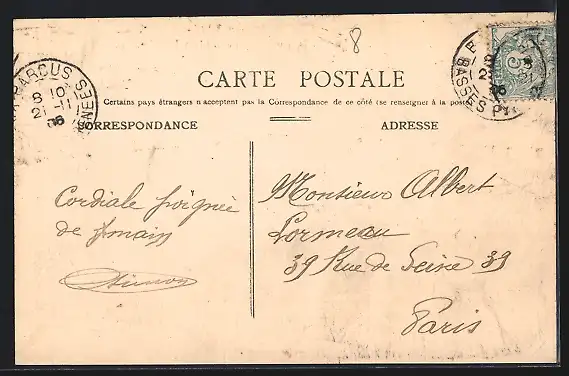 8
CARTE POSTALE
Certains pays étrangers n'acceptent pas la Correspondance de ce côté (se renseigner à la poste)
CORRESPONDANCE
ADRESSE
BARCUS
8 10
21 - 11
06
BASSES PYR
Cordiale poignée
de main
Monsieur Albert
Lormeau
39 Rue de Seine 39
Paris